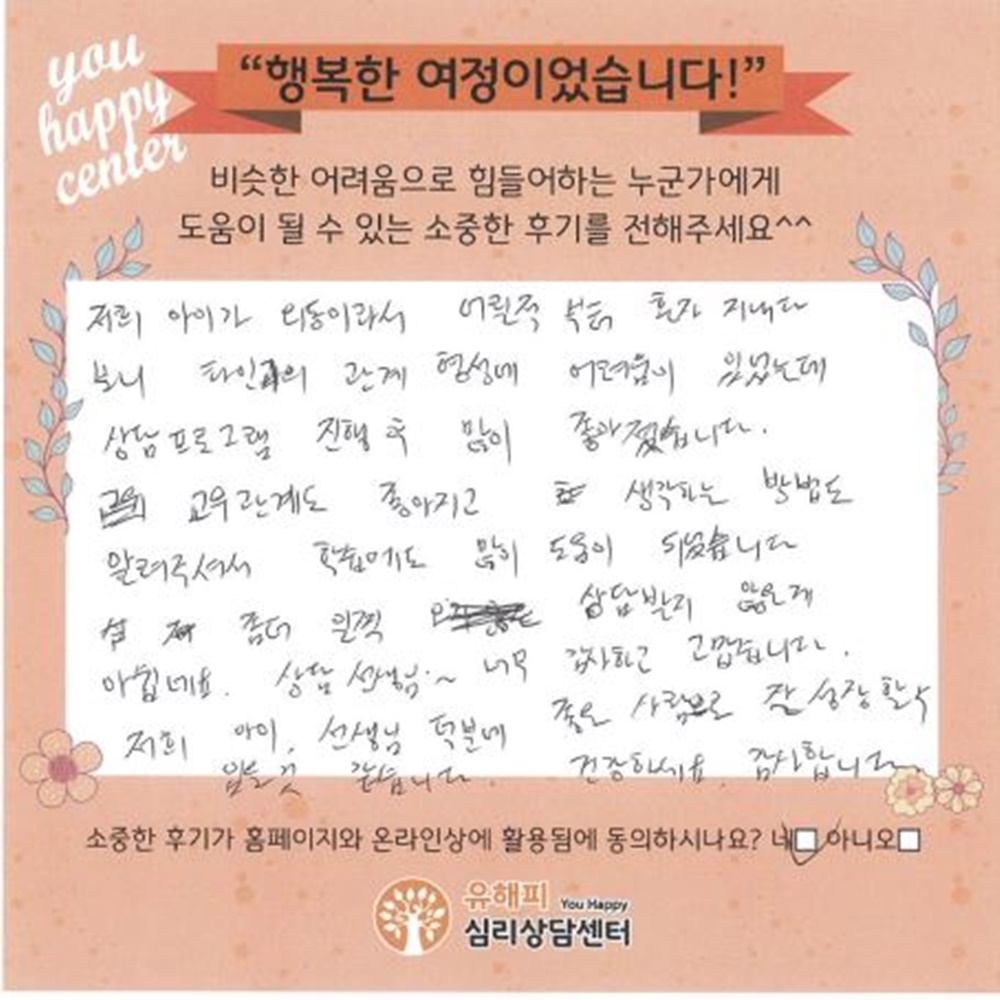 you
happy
center
“행복한 여정이었습니다!”
비슷한 어려움으로 힘들어하는 누군가에게
도움이 될 수 있는 소중한 후기를 전해주세요^^
저희 아이가 외동이라서 어릴적 부터 혼자 지내다
보니 타인과의 관계 형성에 어려움이 있었는데
상담프로그램 진행 후 많이 좋아졌습니다.
교우관계도 좋아지고 생각하는 방법도
알려주셔서 학습에도 많이 도움이 되었습니다
좀더 일찍 상담받지 않은게
아쉽네요. 상담 선생님~ 너무 감사하고 고맙습니다.
저희 아이, 선생님 덕분에 좋은 사람으로 잘 성장할수
있을것 같습니다. 건강하세요. 감사합니다.
소중한 후기가 홈페이지와 온라인상에 활용됨에 동의하시나요? 네 아니오
유해피 You Happy
심리상담센터